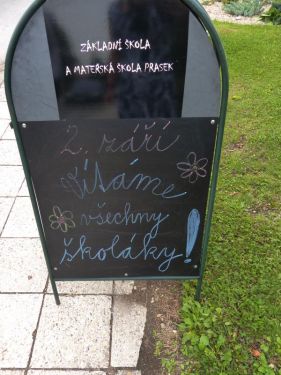 ZÁKLADNÍ ŠKOLA
A MATEŘSKÁ ŠKOLA PRASEK
2. září
Vítáme
všechny
školáky!